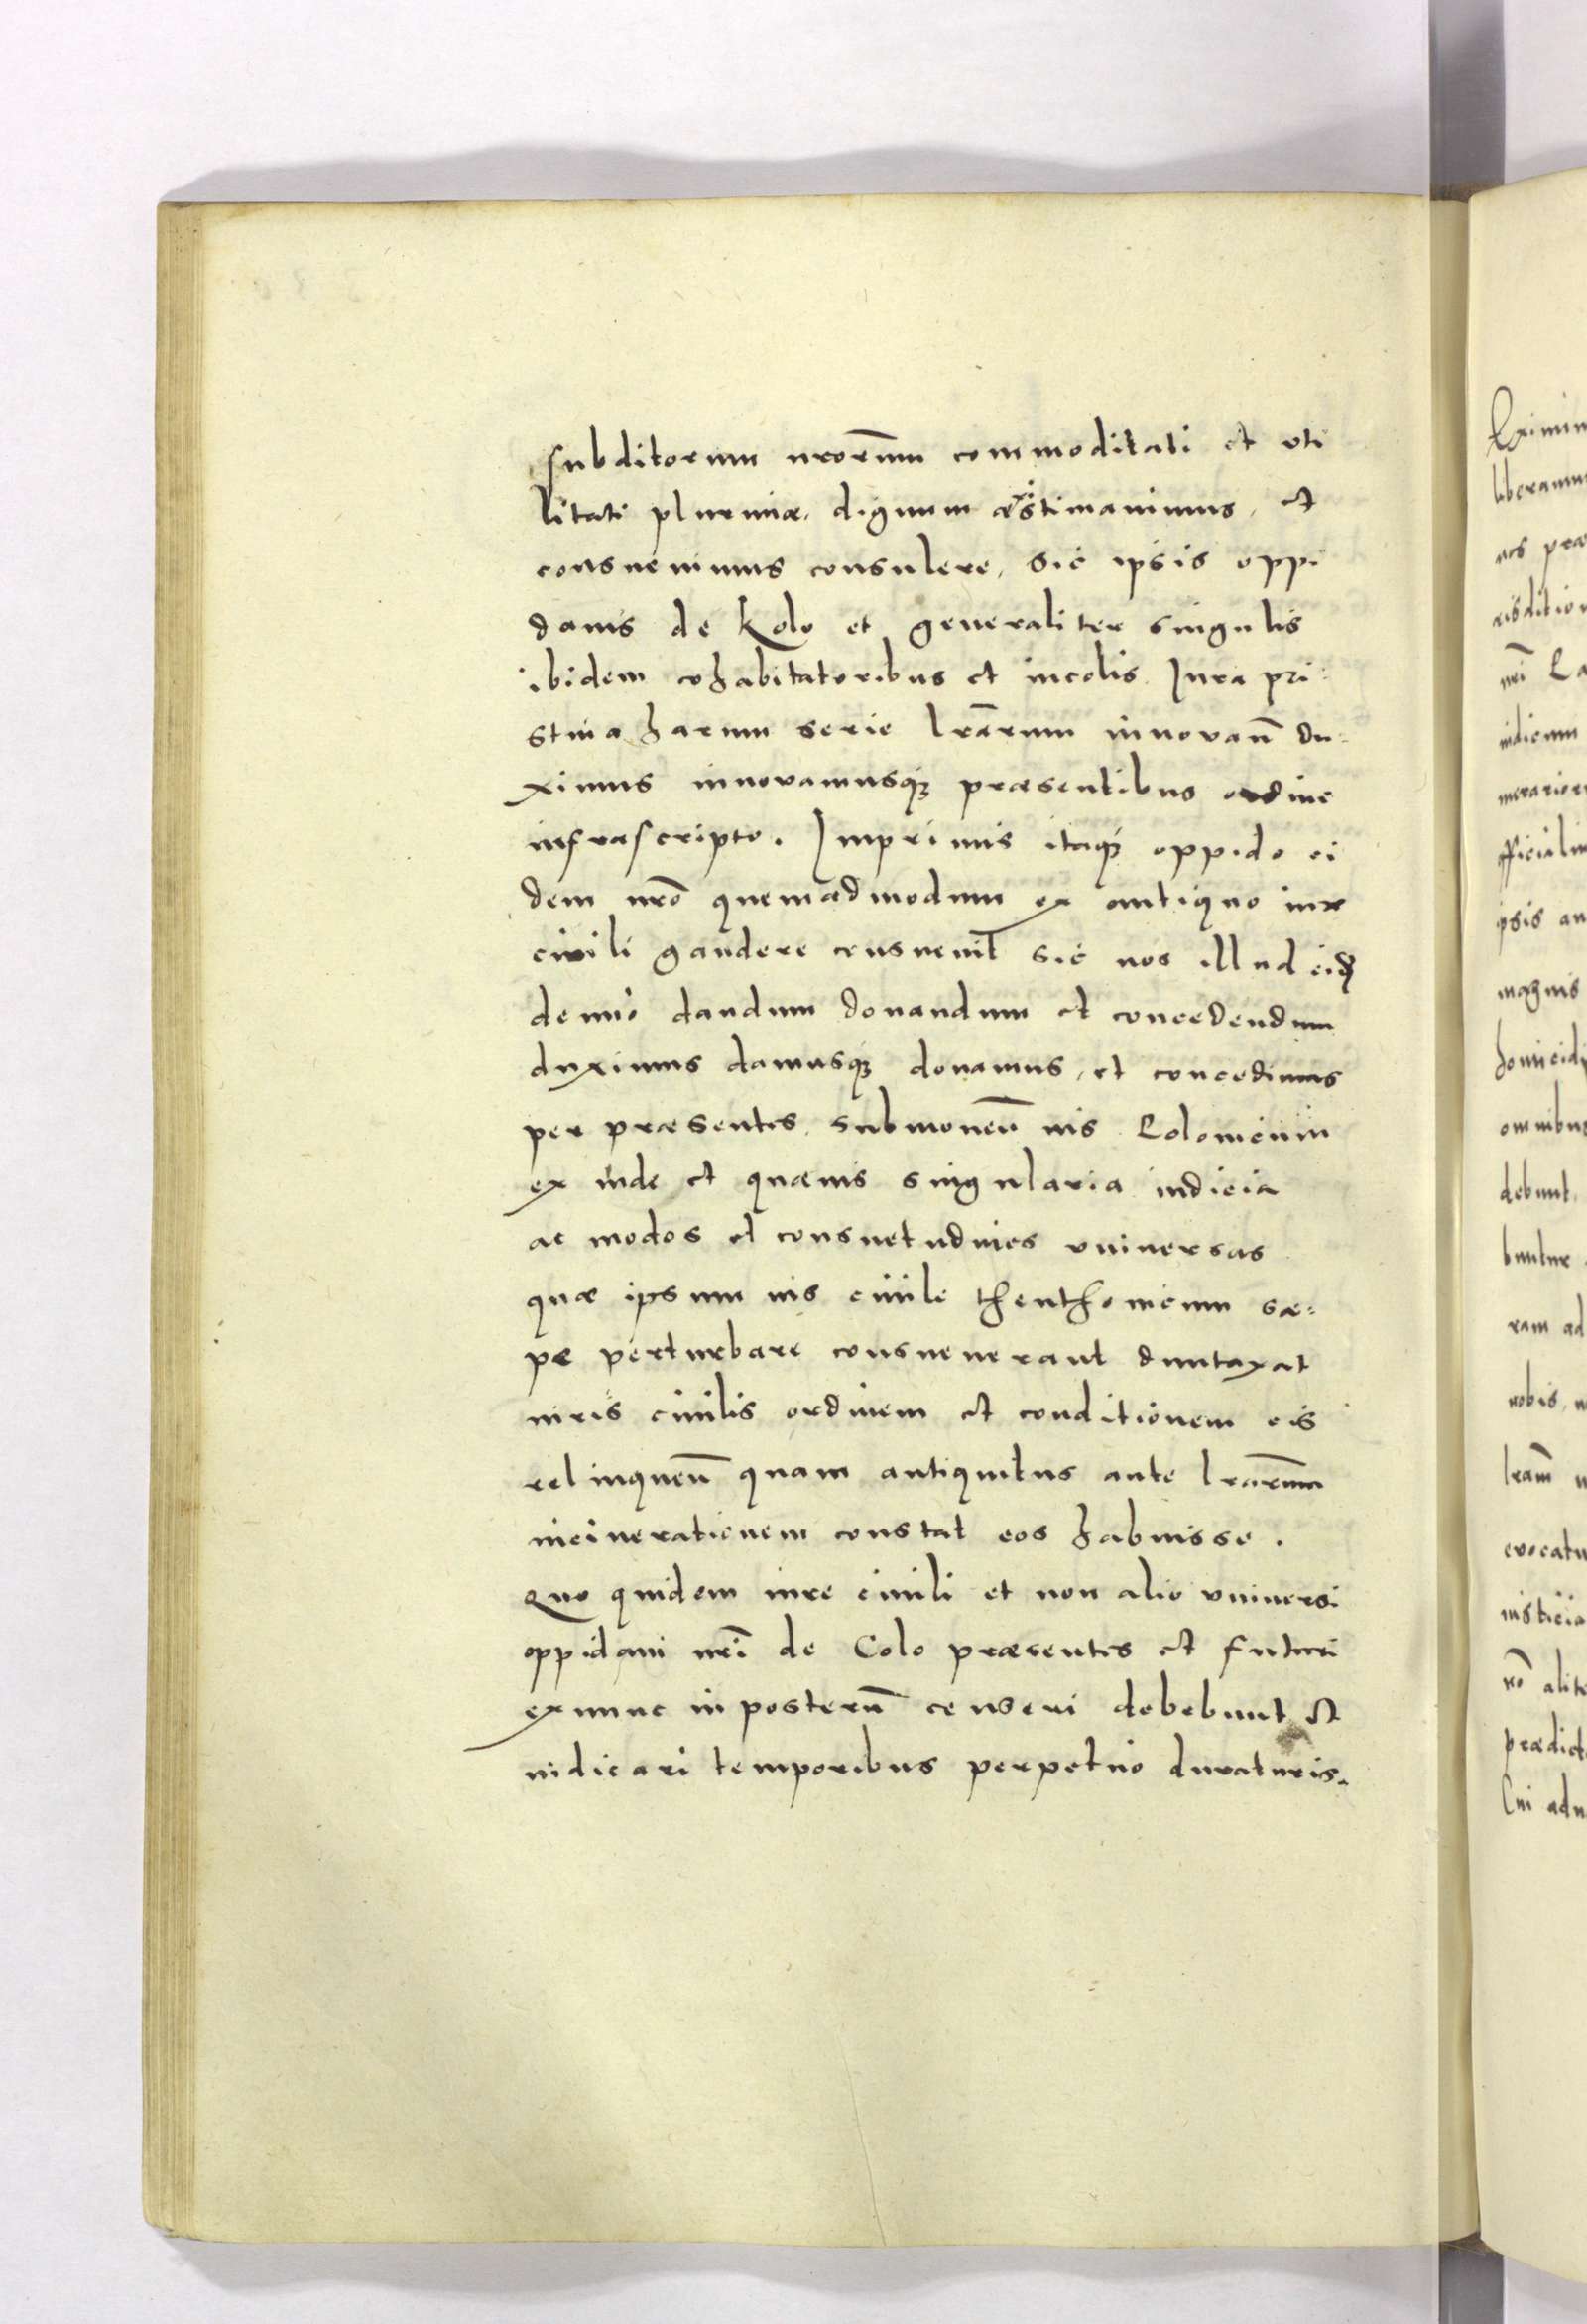 subditorum nrorūm commoditati et uti
litati plurimæ, dignum æstimavimus, et
consuevimus consulere, sic ipsis oppi
danis de Kolo et generaliter singulis
ibidem cohabitatoribus et incolis Jura pri-
stina harum serie lrārum innovan̄ du-
ximus innovamusqꝫ præsentibus ordine
infrascripto. Imprimis itaqꝫ oppido ei
dem nrō quemadmodum ex antiquo iure
civili gaudere consuevit sic nos illud eidꝫ
denuo dandum donandum et concedendum
duximus damusqꝫ donamus, et concedimus
per præsentes, submoven̄ ius Polonicum
ex inde et quævis singularia iudicia
ac modos et consuetudines universas
quæ ipsum ius civile theuthonicum sæ-
pe perturbare consueverant duntaxat
iuris civilis ordinem et conditionem eis
relinquen̄ quam antiquitus ante lrarūm
incinerationem constat eos habuisse.
Quo quidem iure civili et non alio universi
oppidani nrī de Colo præsentes et futuri
exnunc in posterū censeri debebunt et
iudicari temporibus perpetuo duraturis.
Crimin
liberamu
acs præ
risdition
nrī Ca
iudicum
fficialiu
ipsis an
magnis
homicidi
omnibus
debunt.
buntur
ram ad
nobis, n
lram̄
evocatu
iusticia
rō alite
prædict
Cui adu